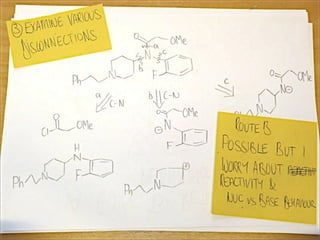 ③ EXAMINE VARIOUS
DISCONNECTIONS
O OMe
a
b N c
Ph N F
a C-N
b C-N
c
O OMe
N
Cl O OMe
H
N
Ph N F
O OMe
N
F
Ph N
ROUTE B
POSSIBLE BUT I
WORRY ABOUT
REACTIVITY &
NUC VS BASE BEHAVIOUR